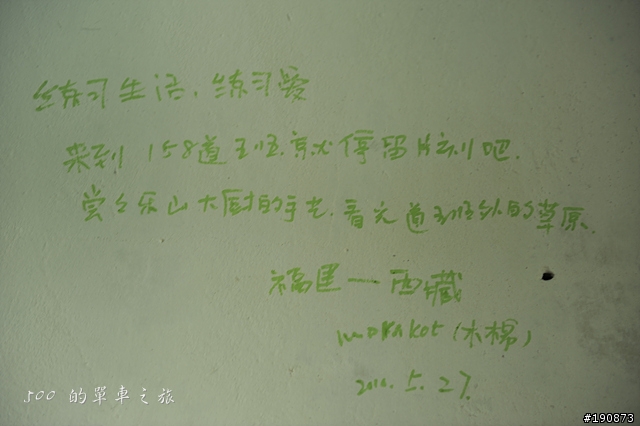 练习生活，练习爱
来到158道班，就停留片刻吧.
尝々乐山大厨的手艺.看无道班外的草原
福建一西藏
morakot(木棉)
2010.5.27.
500 的單車之旅
#190873